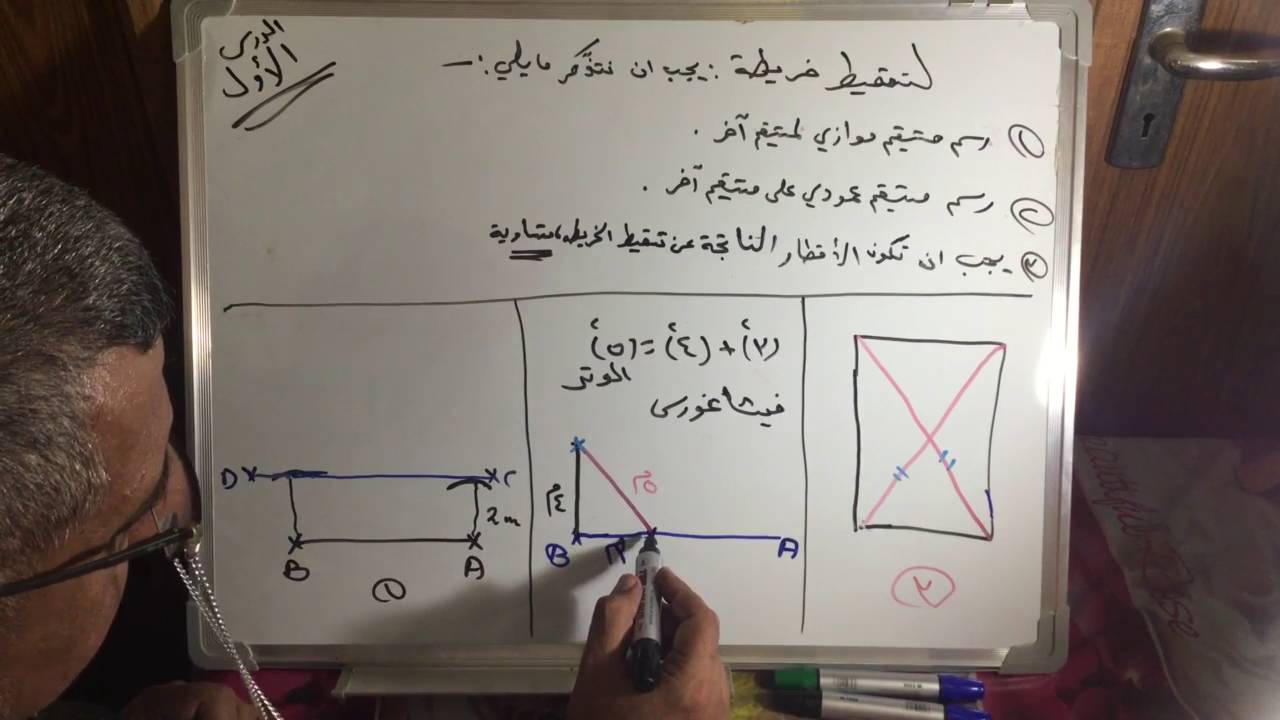 الدرس
الأول
لتنقيط خريطة : يجب ان نتذكر مايلي : -
١ رسم مستقيم موازي لمستقيم آخر .
٢ رسم مستقيم عمودي على مستقيم آخر .
٣ يجب ان تكون الأقطار الناتجة عن تنقيط الخريطة متساوية
(٣)٢ + (٤)٢ = (٥)٢
الوتر
فيثاغورس
٤م
٥م
٣م
B
A
٣
D
C
2m
B
A
١